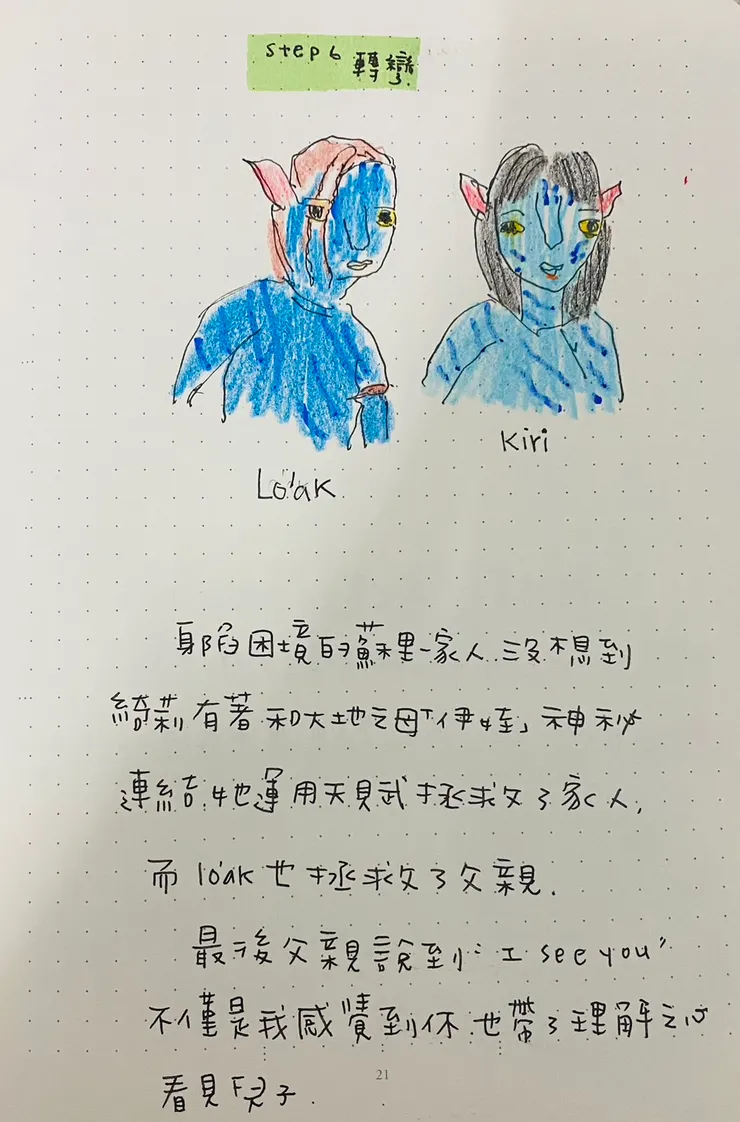 step 6 轉彎
Lo'ak
Kiri
身陷困境的蘇里一家人沒想到
綺莉有著和大地之母「伊娃」神秘
連結 她運用天賦拯救了家人,
而 lo'ak 也拯救了父親.
最後父親說到 "I see you"
不僅是我感覺到你 也帶了理解之心
看見兒子.
21